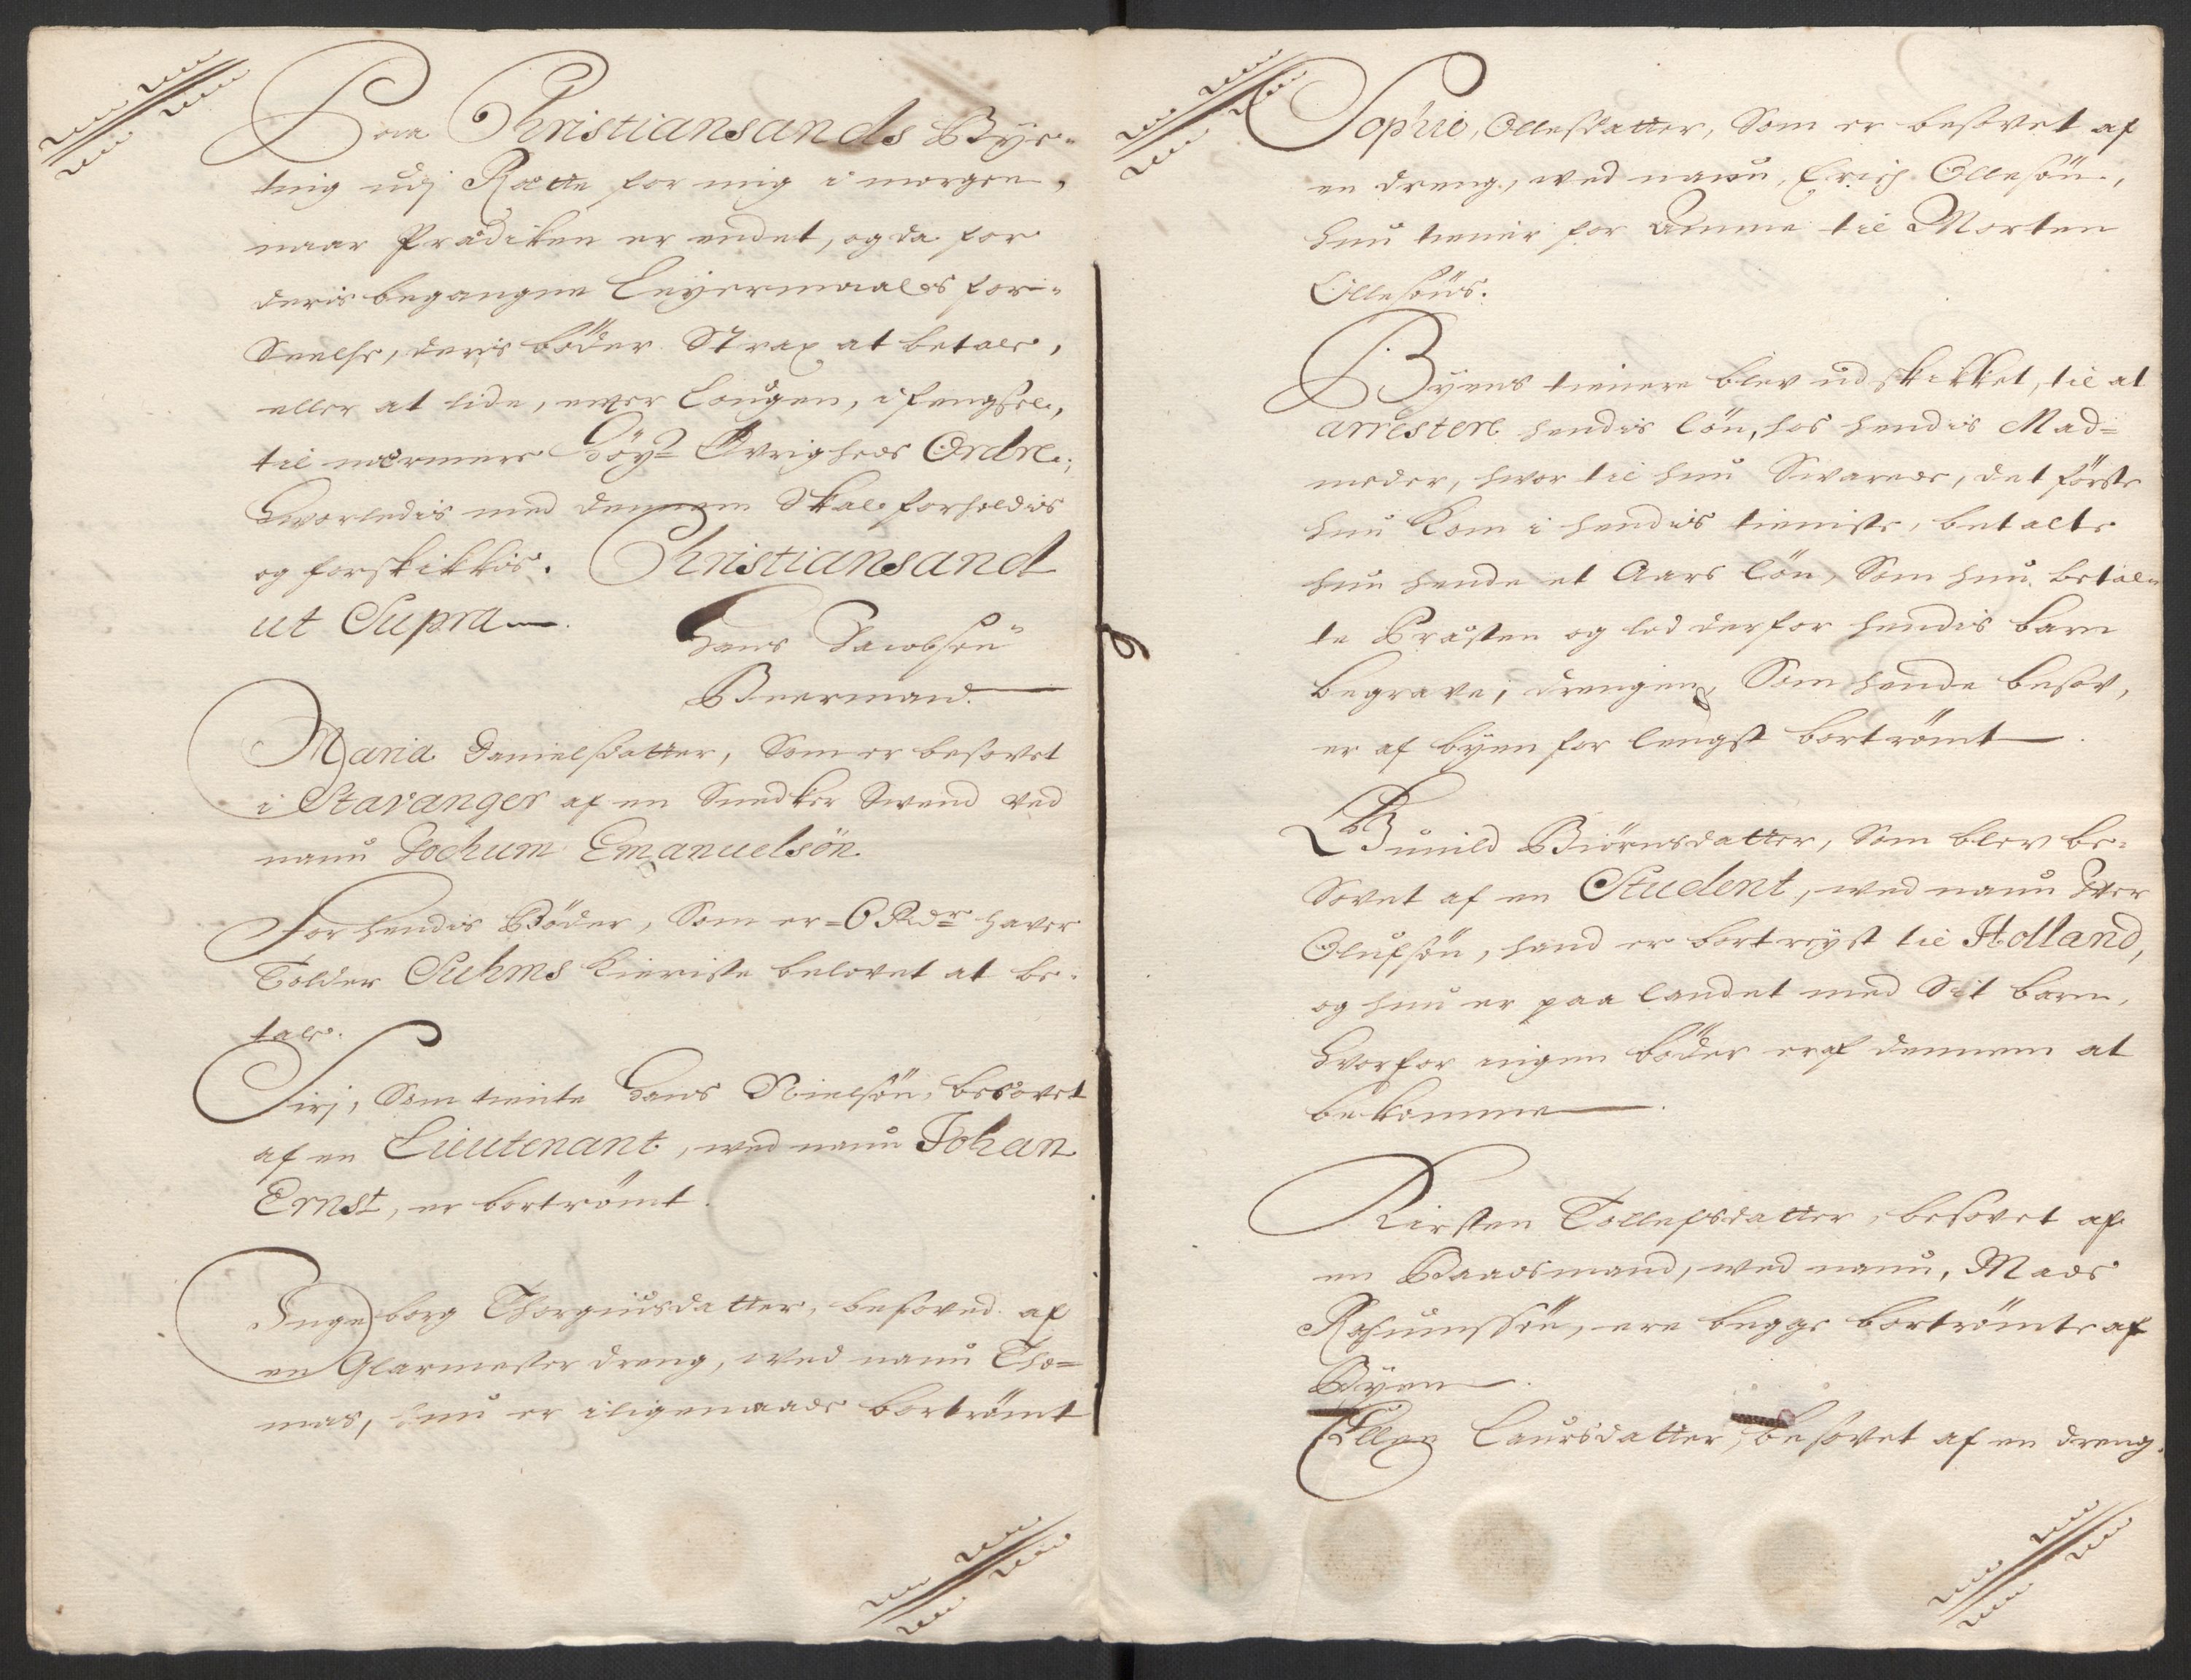 Paa Christiansands Bye-
ting udj Rætte for mig i morgen,
naar Prædiken er endet, og da for
deris begangne Leyermaals for-
Seelse, deris bøder Strax at betale,
eller at lide, efter Lougen, i fengsel,
til nærmere Høy= Øvrigheds Ordre,
hvorledis med dennem Skal forholdis
og forskikkis. Christiansand
ut Supra
Hans Jacobsen
Beermand.
Maria Danielsdatter, Som er besovet
i Stavanger af en Snedker Svend ved
nanu Jochum Emanuelsön
For hendis Böder, Som er = 6 Rdr haver
Tolder Suhms Kieriste belovet at be-
tale.
Sirj, Som tiente Hans Nielsön, besovet
af en Lieutenant, ved nanu Johan
Ernst, er bortrömt.
Ingeborg Thorgiusdatter, besoved af
en Glarmester dreng, ved nanu Tho=
mas, hun er iligemaade bortrömt
Sophie, Ollesdatter, Som er besovet af
en dreng, ved nanu, Erich Ollesön,
hun tiener for Amme til Morten
Ollesöns.
Byens tienere blev udskikket, til at
arrestere hendis lön, hos hendis Mad=
moder, hvor til hun Svarede, det förste
hun kom i hendis tieniste, betalte
hun hende et Aars lön, Som hun betal-
te Præsten og lod derfor hendis barn
begrave; drengen, Som hende besov,
er af byen for lengst bortrömt.
Gunild Biörnsdatter, Som blev be-
Sovet af en Student, ved nanu Iver
Olufsön, hand er bortreyst til Holland,
og hun er paa landet med Sit barn,
hvorfor ingen böder er af dennem at
bekomme.
Kirsten Tollefsdatter, besovet af
en Baadsmand, ved nanu, Mads
Rasmussön, ere begge bortrömte af
Byen.
Ellen Laursdatter, besovet af en dreng